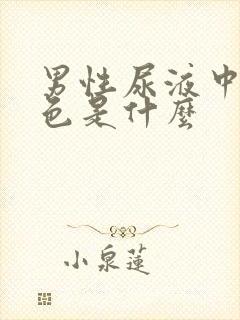 男性尿液中
色是什麼
小泉蓮